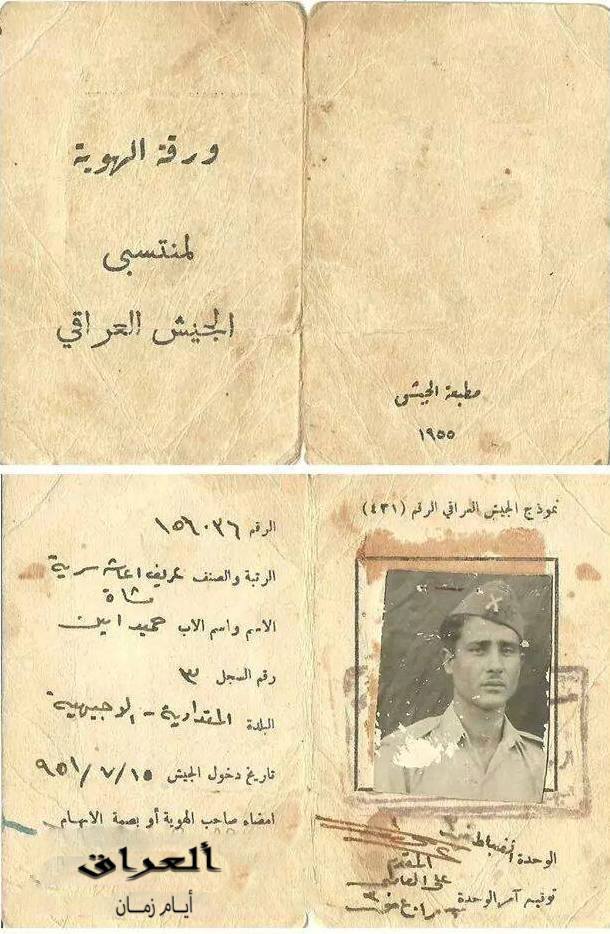 ورقة الهوية
لمنتسبي
الجيش العراقي
مطبعة الجيش
١٩٥٥
نموذج الجيش العراقي الرقم (٤٣١)
الرقم ١٥٦٠٣٦
الرتبة والصنف عريف اعاشة سرية
مشاة
الاسم واسم الاب حميد امين
رقم السجل ٣
البلدة المقدادية - الاجيبهية
تاريخ دخول الجيش ١٥/٧/٩٥١
امضاء صاحب الهوية أو بصمة الابهام
الوحدة انضباط
المقدم
علي
توقيع آمر الوحدة
العراق
أيام زمان